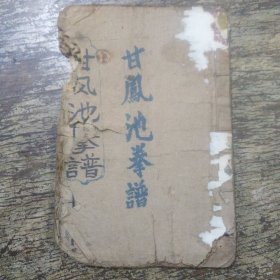 甘鳳池拳譜
甘凤池拳譜